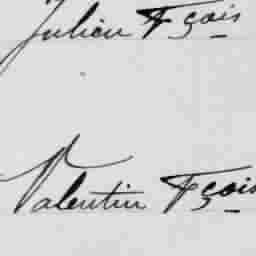 Julien Fçois
Valentin Fçois